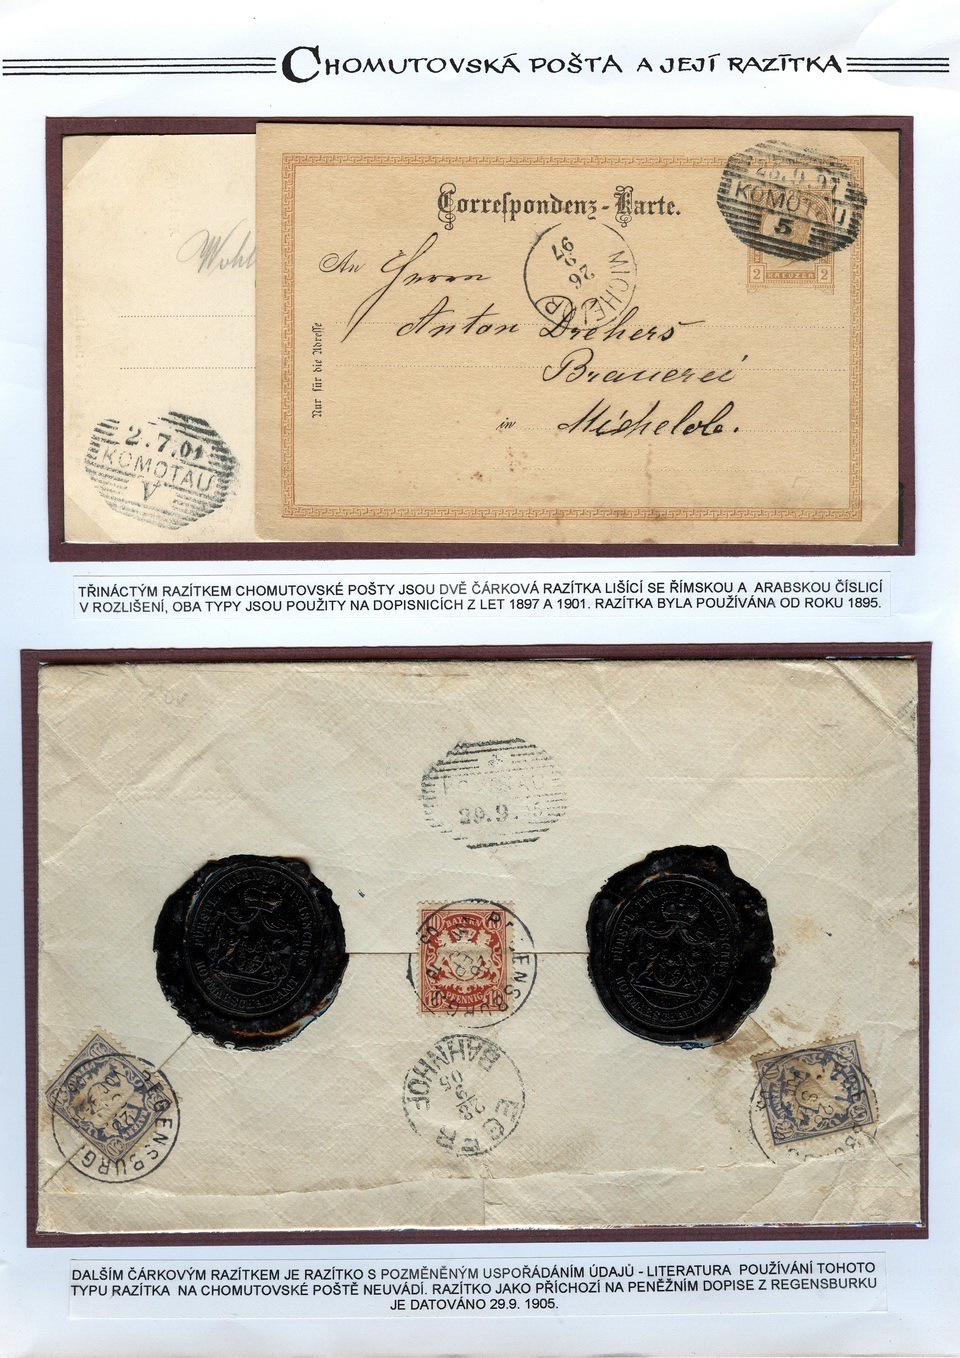 CHOMUTOVSKÁ POŠTA A JEJÍ RAZÍTKA
Correspondenz-Karte.
23.9.97
KOMOTAU
5
2 KREUZER 2
An Herrn
MICHE
26
97
Anton Drehers
Brauerei
in Michelob.
Nur für die Adresse
Wohl
2.7.01
KOMOTAU
V
TŘINÁCTÝM RAZÍTKEM CHOMUTOVSKÉ POŠTY JSOU DVĚ ČÁRKOVÁ RAZÍTKA LIŠÍCÍ SE ŘÍMSKOU A ARABSKOU ČÍSLICÍ
V ROZLIŠENÍ, OBA TYPY JSOU POUŽITY NA DOPISNICÍCH Z LET 1897 A 1901. RAZÍTKA BYLA POUŽÍVÁNA OD ROKU 1895.
29.9.
BAYERN
10 10
PFENNIG
REGENSBURG
HOFMARSCHALLAMT
HOFMARSCHALLAMT
EGER
BAHNHOF
REGENSBURG
DALŠÍM ČÁRKOVÝM RAZÍTKEM JE RAZÍTKO S POZMĚNĚNÝM USPOŘÁDÁNÍM ÚDAJŮ - LITERATURA POUŽÍVÁNÍ TOHOTO
TYPU RAZÍTKA NA CHOMUTOVSKÉ POŠTĚ NEUVÁDÍ. RAZÍTKO JAKO PŘÍCHOZÍ NA PENĚŽNÍM DOPISE Z REGENSBURKU
JE DATOVÁNO 29.9. 1905.